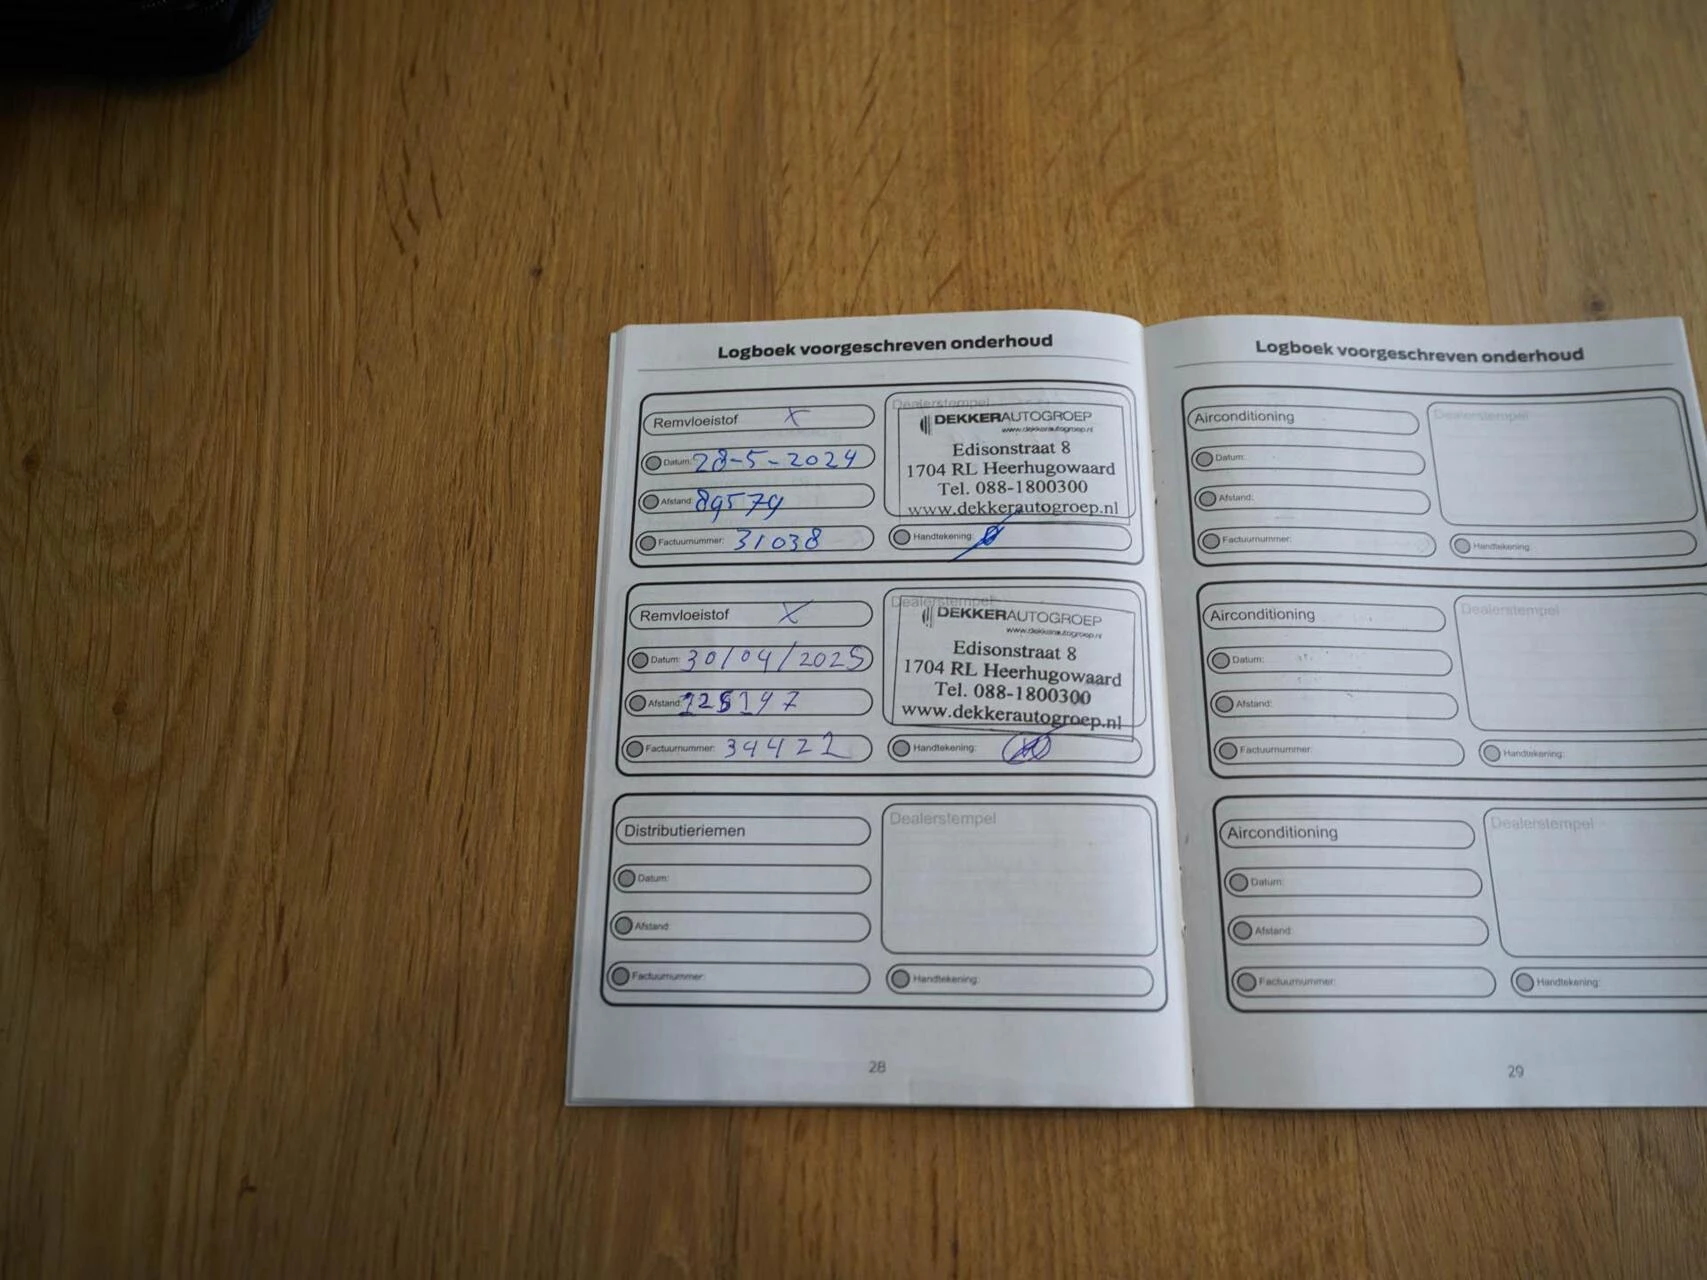 Logboek voorgeschreven onderhoud
Remvloeistof X
Datum: 28-5-2024
Afstand: 89579
Factuurnummer: 31038
Dealerstempel
DEKKERAUTOGROEP
www.dekkerautogroep.nl
Edisonstraat 8
1704 RL Heerhugowaard
Tel. 088-1800300
www.dekkerautogroep.nl
Handtekening:
Remvloeistof X
Datum: 30/04/2025
Afstand: 125197
Factuurnummer: 34422
Dealerstempel
DEKKERAUTOGROEP
www.dekkerautogroep.nl
Edisonstraat 8
1704 RL Heerhugowaard
Tel. 088-1800300
www.dekkerautogroep.nl
Handtekening:
Distributieriemen
Datum:
Afstand:
Factuurnummer:
Dealerstempel
Handtekening:
28
Logboek voorgeschreven onderhoud
Airconditioning
Datum:
Afstand:
Factuurnummer:
Dealerstempel
Handtekening:
Airconditioning
Datum:
Afstand:
Factuurnummer:
Dealerstempel
Handtekening:
Airconditioning
Datum:
Afstand:
Factuurnummer:
Dealerstempel
Handtekening:
29